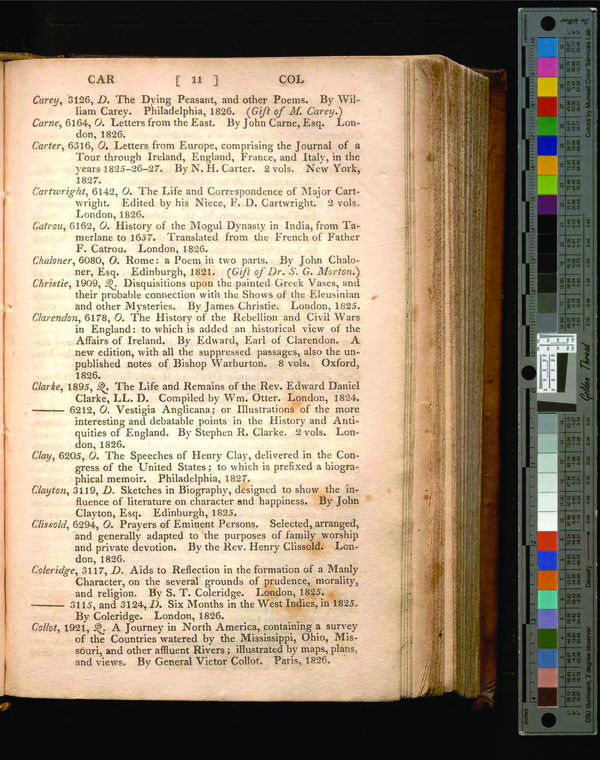 CAR [ 11 ] COL
Carey, 3126, D. The Dying Peasant, and other Poems. By Wil-
liam Carey. Philadelphia, 1826. (Gift of M. Carey.)
Carne, 6164, O. Letters from the East. By John Carne, Esq. Lon-
don, 1826.
Carter, 6316, O. Letters from Europe, comprising the Journal of a
Tour through Ireland, England, France, and Italy, in the
years 1825-26-27. By N. H. Carter. 2 vols. New York,
1827.
Cartwright, 6142, O. The Life and Correspondence of Major Cart-
wright. Edited by his Niece, F. D. Cartwright. 2 vols.
London, 1826.
Catrou, 6162, O. History of the Mogul Dynasty in India, from Ta-
merlane to 1657. Translated from the French of Father
F. Catrou. London, 1826.
Chaloner, 6080, O. Rome: a Poem in two parts. By John Chalo-
ner, Esq. Edinburgh, 1821. (Gift of Dr. S. G. Morton.)
Christie, 1909, Q. Disquisitions upon the painted Greek Vases, and
their probable connection with the Shows of the Eleusinian
and other Mysteries. By James Christie. London, 1825.
Clarendon, 6178, O. The History of the Rebellion and Civil Wars
in England: to which is added an historical view of the
Affairs of Ireland. By Edward, Earl of Clarendon. A
new edition, with all the suppressed passages, also the un-
published notes of Bishop Warburton. 8 vols. Oxford,
1826.
Clarke, 1895, Q. The Life and Remains of the Rev. Edward Daniel
Clarke, LL. D. Compiled by Wm. Otter. London, 1824.
—— 6212, O. Vestigia Anglicana; or Illustrations of the more
interesting and debatable points in the History and Anti-
quities of England. By Stephen R. Clarke. 2 vols. Lon-
don, 1826.
Clay, 6205, O. The Speeches of Henry Clay, delivered in the Con-
gress of the United States; to which is prefixed a biogra-
phical memoir. Philadelphia, 1827.
Clayton, 3119, D. Sketches in Biography, designed to show the in-
fluence of literature on character and happiness. By John
Clayton, Esq. Edinburgh, 1825.
Clissold, 6294, O. Prayers of Eminent Persons. Selected, arranged,
and generally adapted to the purposes of family worship
and private devotion. By the Rev. Henry Clissold. Lon-
don, 1826.
Coleridge, 3117, D. Aids to Reflection in the formation of a Manly
Character, on the several grounds of prudence, morality,
and religion. By S. T. Coleridge. London, 1825.
—— 3115, and 3124, D. Six Months in the West Indies, in 1825.
By Coleridge. London, 1826.
Collot, 1921, Q. A Journey in North America, containing a survey
of the Countries watered by the Mississippi, Ohio, Mis-
souri, and other affluent Rivers; illustrated by maps, plans,
and views. By General Victor Collot. Paris, 1826.
Golden Thread